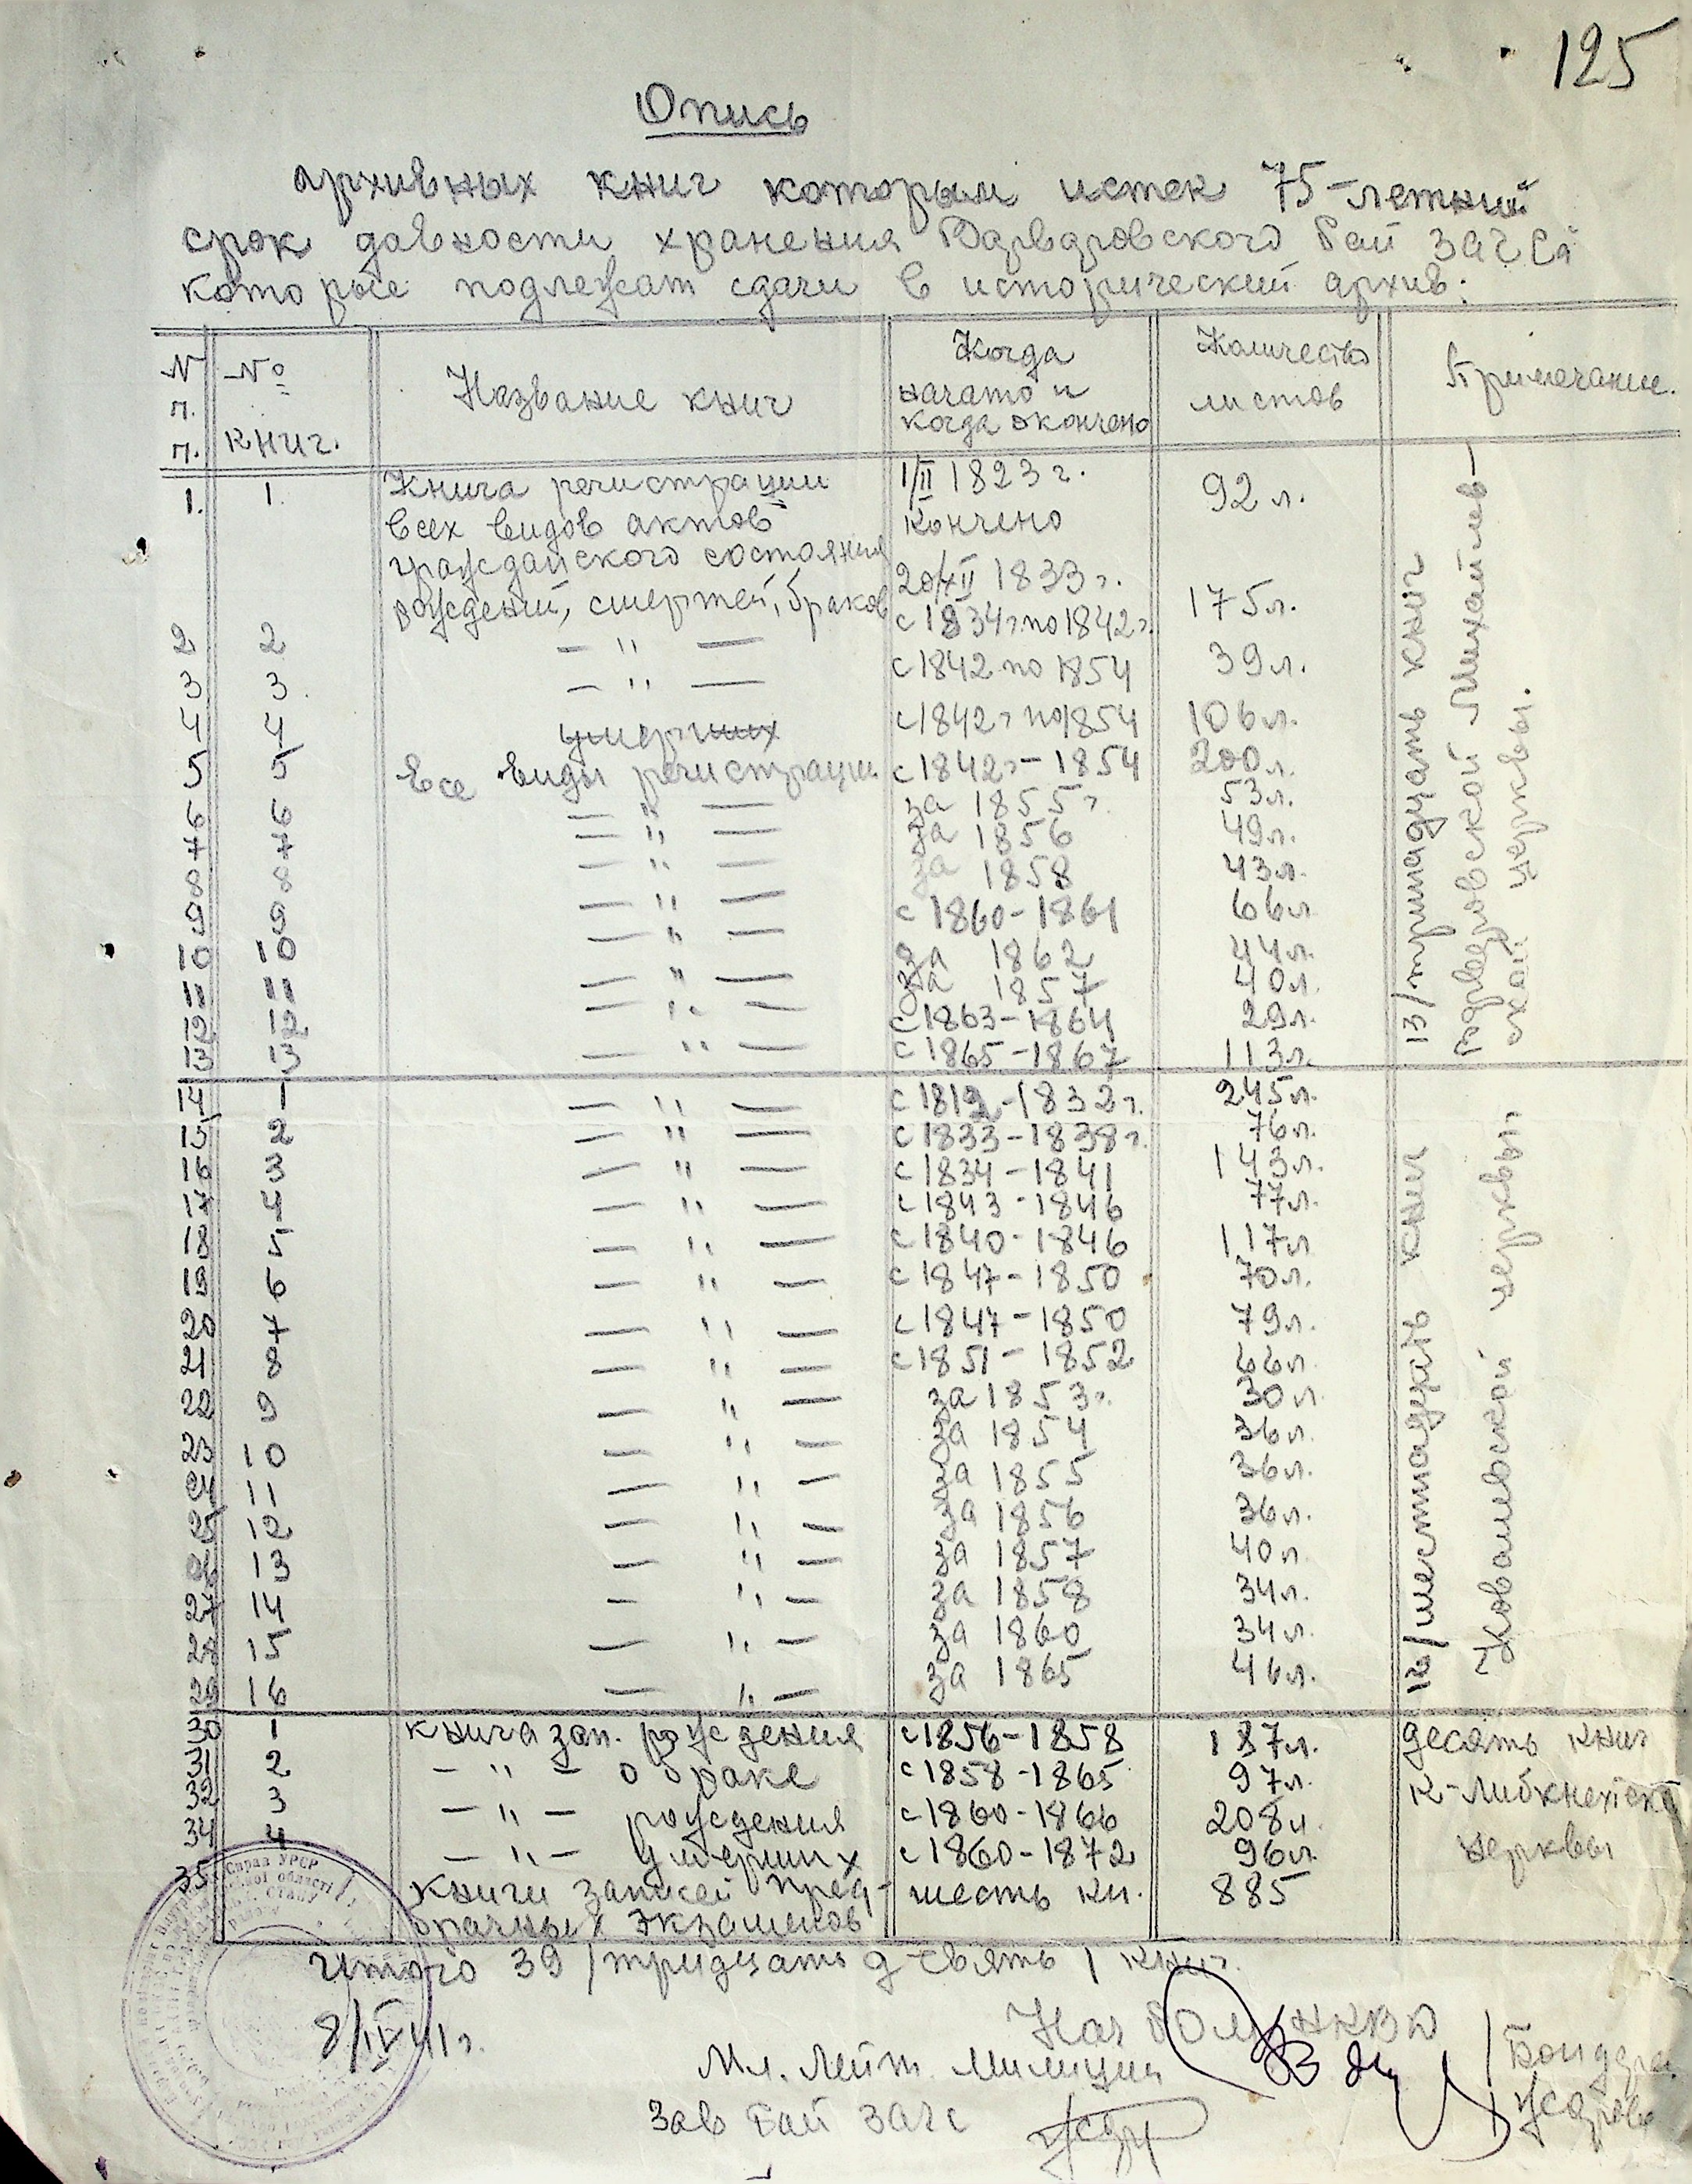 125
Опись
архивных книг которым истек 75-летний
срок давности хранения Варваровского Рай ЗАГСа
которые подлежат сдачи в исторический архив.
N п. п. | № книг. | Название книг | Когда начато и когда окончено | Количество листов | Примечание.
1. 1. Книга регистрации 1/II 1823 г. 92 л.
всех видов актов кончено
гражданского состояния 20/XII 1833 г.
рождений, смертей, браков
2 2 — " — с 1834 г по 1842 г. 175 л.
3 3. — " — с 1842 по 1854 39 л.
4 4 умерших с 1842 г по 1854 106 л.
5 5 Все виды регистрации с 1842 г - 1854 200 л.
6 6 — " — за 1855 г. 53 л.
7 7 — " — за 1856 49 л.
8 8 — " — за 1858 43 л.
9 9 — " — с 1860-1861 66 л
10 10 — " — за 1862 44 л.
11 11 — " — за 1857 40 л.
12 12 — " — с 1863-1864 29 л.
13 13 — " — с 1865-1867 113 л.
13/тринадцать книг
Варваровской Михайлев-
ской церквы.
14 1 — " — с 1819-1832 г. 245 л.
15 2 — " — с 1833-1838 г. 76 л.
16 3 — " — с 1834-1841 143 л.
17 4 — " — с 1843-1846 77 л.
18 5 — " — с 1840-1846 117 л
19 6 — " — с 1847-1850 70 л.
20 7 — " — с 1847-1850 79 л.
21 8 — " — с 1851-1852 66 л.
22 9 — " — за 1853 г. 30 л.
23 10 — " — за 1854 36 л.
24 11 — " — за 1855 36 л.
25 12 — " — за 1856 36 л.
26 13 — " — за 1857 40 л
27 14 — " — за 1858 34 л.
28 15 — " — за 1860 34 л.
29 16 — " — за 1865 46 л.
16/шестнадцать книг
"Ковалевской церквы"
30 1 книга зап. рождения с 1856-1858 187 л. десять книг
31 2 - " - о браке с 1858-1865 97 л. К-Либкнехтской
32 3 - " - рождения с 1860-1866 208 л. церквы
34 4 - " - умерших с 1860-1872 96 л.
35 книги записей пред- шесть кн. 885
брачных экзаменов
Итого 39 /тридцать девять/ книг.
8/IV 41 г.
Нач НКВД
Мл. Лейт. Милиции
Зав Рай Загс